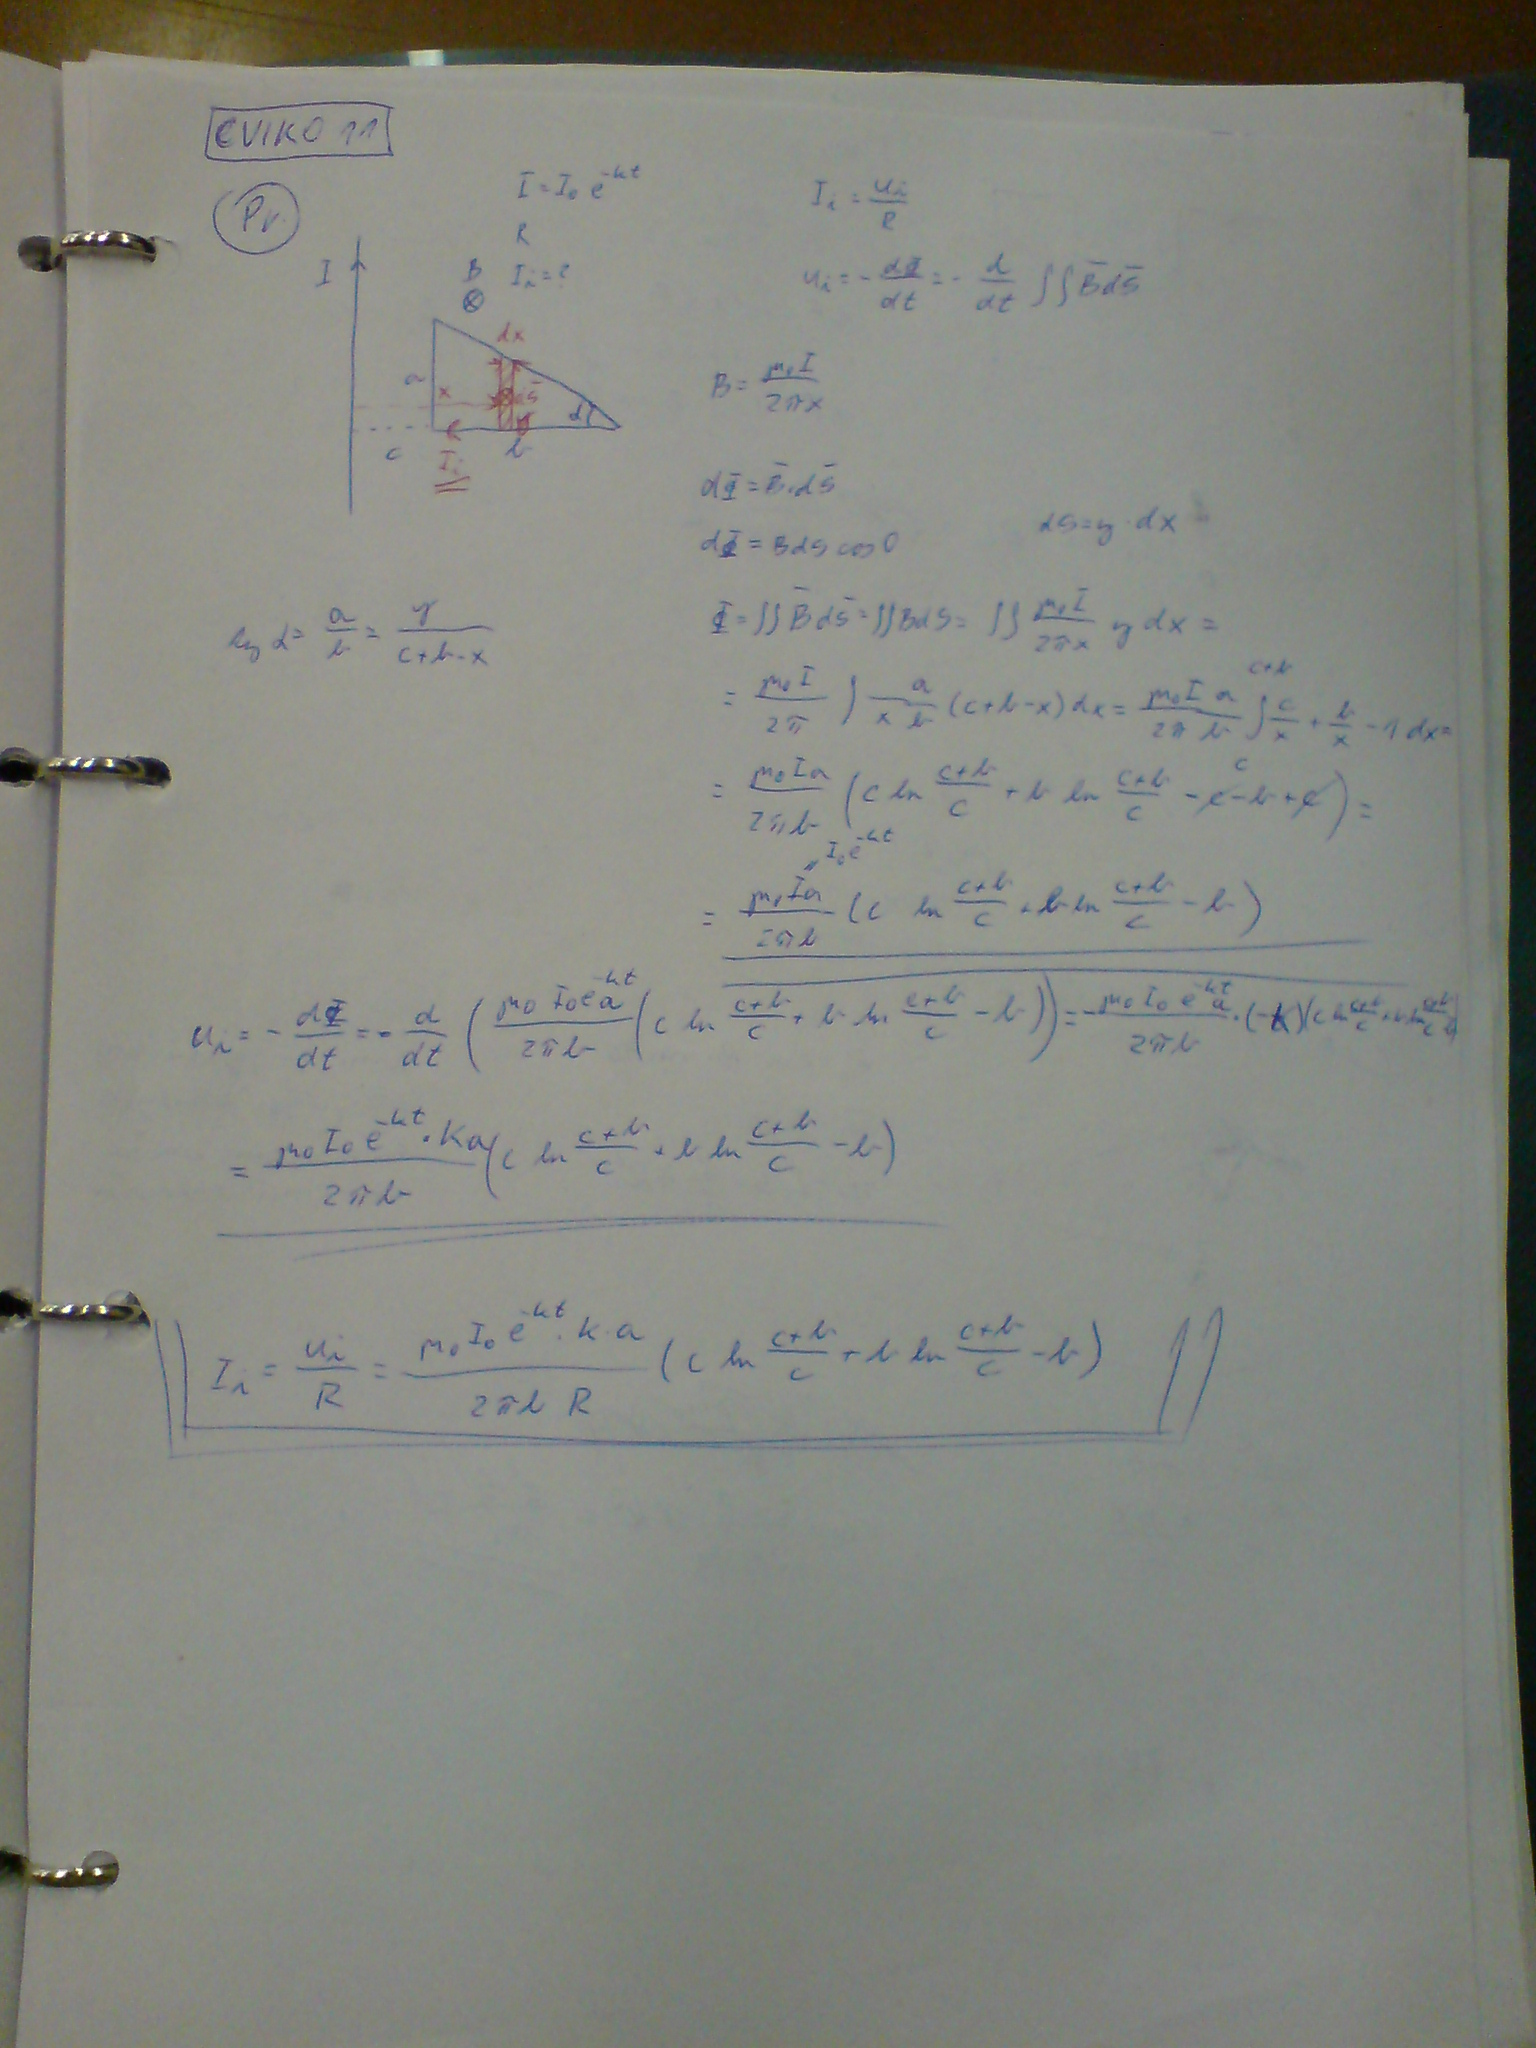 CVIKO 11
Př.
I = I₀ e^-kt
R
I_i = ?
I
B
dx
a
x
dS
α
c
b
I_i
I_i = u_i / R
u_i = - dΦ/dt = - d/dt ∫∫ B̄ dS̄
B = μ₀I / 2πx
dΦ = B̄·dS̄
dΦ = B dS cos 0
dS = y·dx
tg α = a/b = y / (c+b-x)
Φ = ∫∫ B̄ dS̄ = ∫∫ B dS = ∫∫ μ₀I / 2πx y dx =
= μ₀I / 2π ∫ a / x b (c+b-x) dx = μ₀I a / 2π b ∫_c^c+b c/x + b/x - 1 dx =
= μ₀Ia / 2πb (c ln (c+b)/c + b ln (c+b)/c - c - b + c) =
" I₀e^-kt
= μ₀Ia / 2πb (c ln (c+b)/c + b ln (c+b)/c - b)
u_i = - dΦ/dt = - d/dt (μ₀ I₀e^-kt a / 2πb (c ln (c+b)/c + b ln (c+b)/c - b)) = - μ₀ I₀ e^-kt a / 2πb · (-k)(c ln (c+b)/c + b ln (c+b)/c - b)
= μ₀ I₀ e^-kt · k a / 2πb (c ln (c+b)/c + b ln (c+b)/c - b)
I_i = u_i / R = μ₀ I₀ e^-kt · k · a / 2πb R (c ln (c+b)/c + b ln (c+b)/c - b)